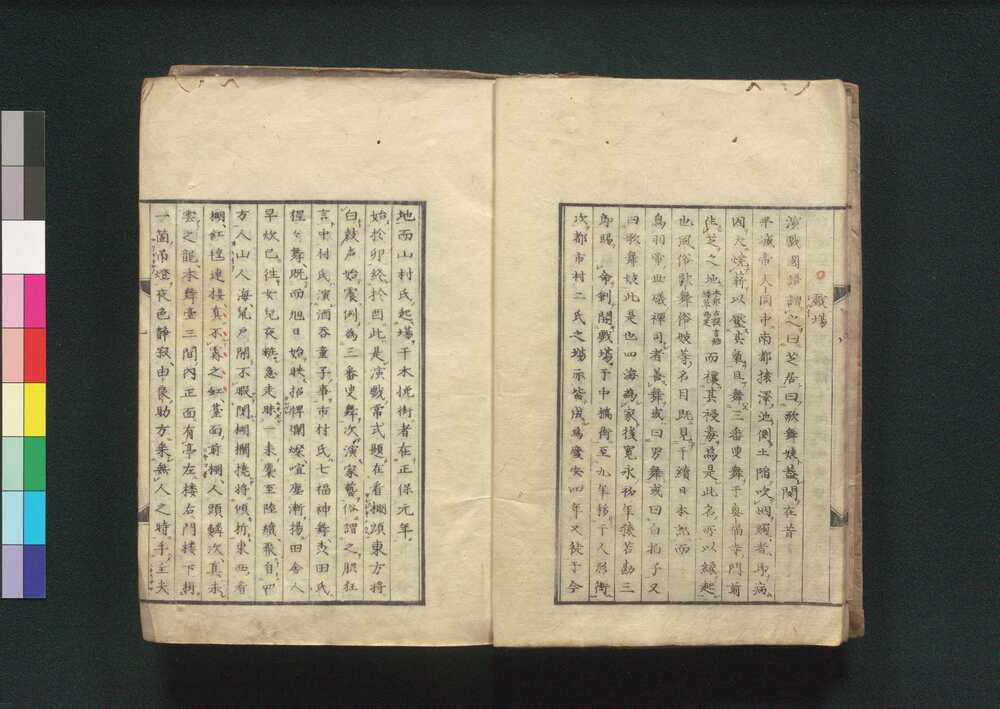 戲場
演戲国語謂之曰芝居曰歌舞妓蓋聞在昔
平城帝大同中南都猿澤池側土陥吹烟觸者即病
因大燒薪以壓其氣且舞三番叟舞于興福寺門前
生芝之地 而禳其祲毒焉是此名所以縁起
也風俗歌舞俗妓等名目既見于續日本然而
鳥羽帝世礒禪司者善舞或曰男舞或曰白拍子又
曰歌舞妓此是也四海為家後寛永初年猿若勘三
郎賜 命剏開戲場于中橋街至九年移于人形街
次都市村二氏之場亦皆成焉慶安四年又徙于今
地而山村氏起場于木挽街者在正保元年
始於卯終於酉此是演戲常式題在看棚頭東方将
白鼓声始震例為三番叟舞次演家藝俗謂之脇狂
言中村氏演酒吞童子事市村氏七福神舞森田氏
猩々舞既而旭日始映招牌爛燦喧塵漸揚田舎人
早炊已徃女兒夜粧急走昧一隊麇至陸續飛自甲
方人山人海鼠戸閙不暇関棚欄撓将傾折東西看
棚紅幔連接真不霽之虹臺面前棚人頭鱗次真未
雲之龍本舞臺三間内正面有亭左楼右門楼下掛
一箇吊燈夜色静寂由良助方来無人之時手上夫